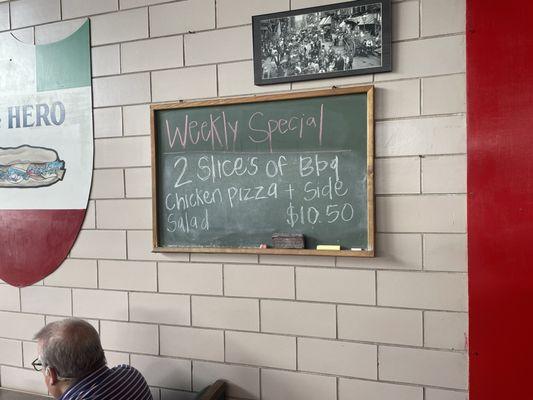 HERO
Weekly Special
2 Slices of Bbq
Chicken pizza + Side
Salad $10.50